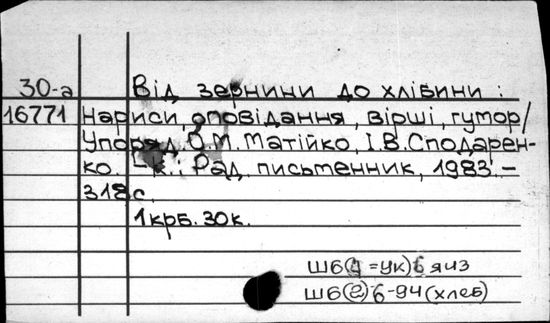 30-а Від зернини до хлібини :
16771 Нариси, оповідання, вірші, гумор/
Упоряд. О.М. Матійко, І.В. Сподарен-
ко. - К.: Рад. письменник, 1983.-
318с.
1крб. 30к.
Ш6(4=УК)6 я43
Ш6(2)6-94(хлеб)